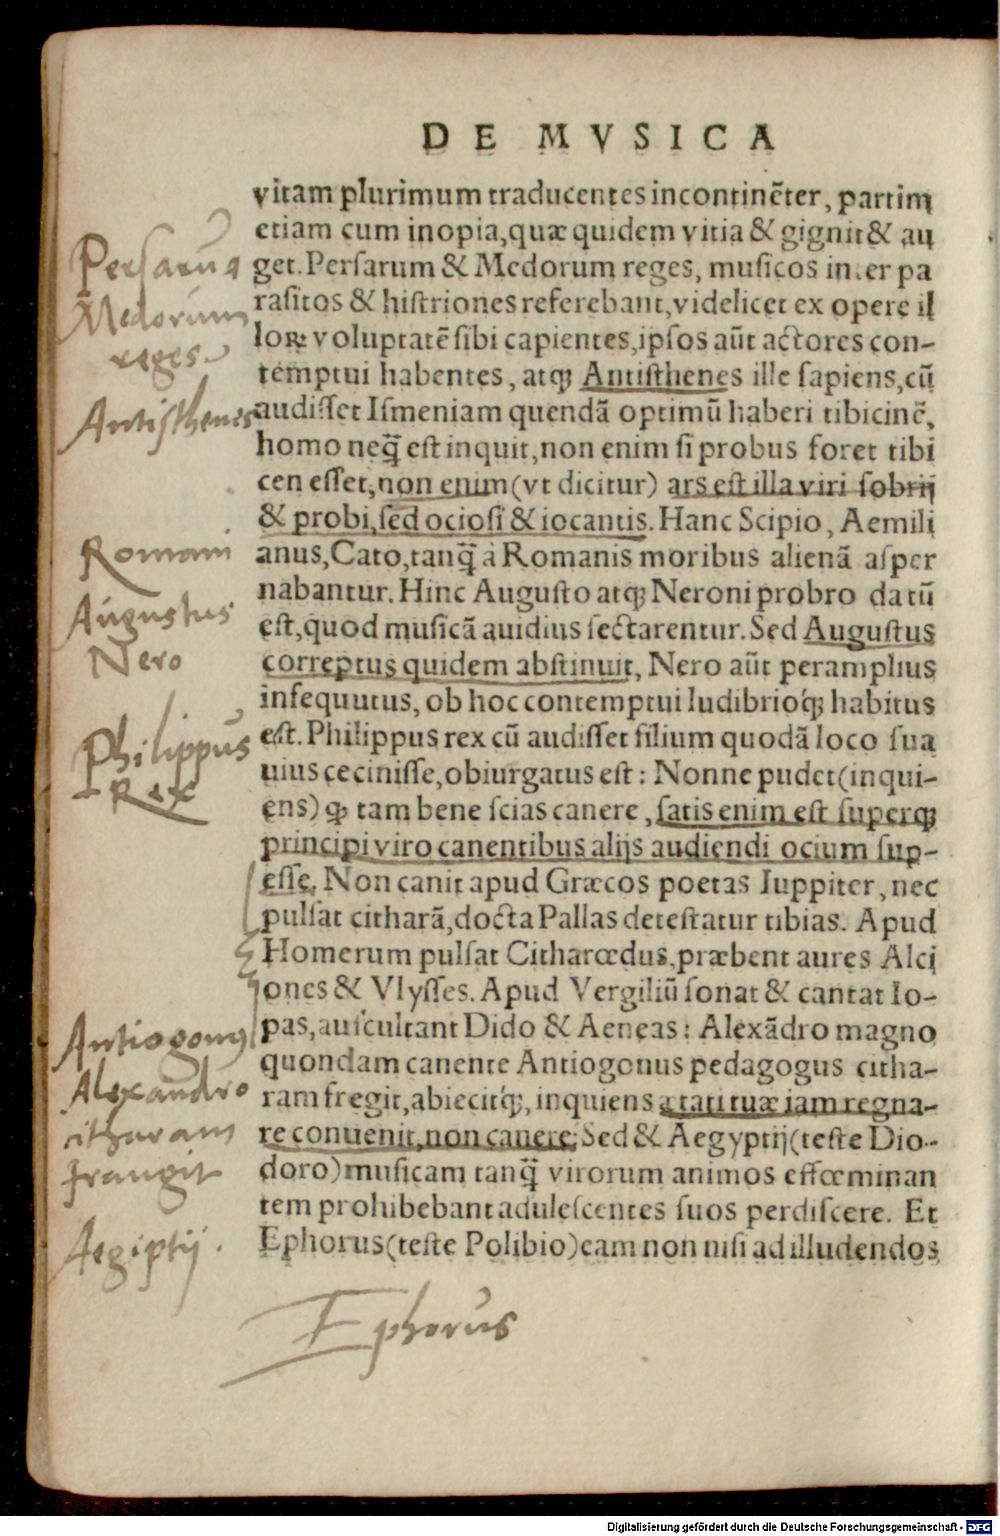 DE MVSICA
vitam plurimum traducentes incontinẽter, partim
etiam cum inopia, quæ quidem vitia & gignit & au
get. Persarum & Medorum reges, musicos inter pa
rasitos & histriones referebant, videlicet ex opere il
loꝝ voluptatẽ sibi capientes, ipsos aũt actores con-
temptui habentes, atq; Antisthenes ille sapiens, cũ
audisset Ismeniam quendã optimũ haberi tibicinẽ,
homo neq̃ est inquit, non enim si probus foret tibi
cen esset, non enim (vt dicitur) ars est illa viri sobrij
& probi, sed ociosi & iocantis. Hanc Scipio, Aemili
anus, Cato, tanq̃ à Romanis moribus alienã asper
nabantur. Hinc Augusto atq; Neroni probro datũ
est, quod musicã auidius sectarentur. Sed Augustus
correptus quidem abstinuit, Nero aũt peramplius
insequutus, ob hoc contemptui ludibrioq́; habitus
est. Philippus rex cũ audisset filium quodã loco sua
uius cecinisse, obiurgatus est: Nonne pudet (inqui-
ens) ꝙ tam bene scias canere, satis enim est superq;
principi viro canentibus alijs audiendi ocium sup-
esse. Non canit apud Græcos poetas Iuppiter, nec
pulsat citharã, docta Pallas detestatur tibias. Apud
Homerum pulsat Citharœdus, præbent aures Alci
ones & Vlysses. Apud Vergiliũ sonat & cantat Io-
pas, auscultant Dido & Aeneas: Alexãdro magno
quondam canente Antiogonus pedagogus citha-
ram fregit, abiecitq́;, inquiens ætati tuæ iam regna-
re conuenit, non canere: Sed & Aegyptij (teste Dio-
doro) musicam tanq̃ virorum animos effœminan
tem prohibebant adulescentes suos perdiscere. Et
Ephorus (teste Polibio) eam non nisi ad illudendos
Persarum
Medorum
reges
Antisthenes
Romani
Augustus
Nero
Philippus
Rex
Antiogonus
Alexandro
citharam
frangit
Aegiptij.
Ephorus
Digitalisierung gefördert durch die Deutsche Forschungsgemeinschaft - DFG